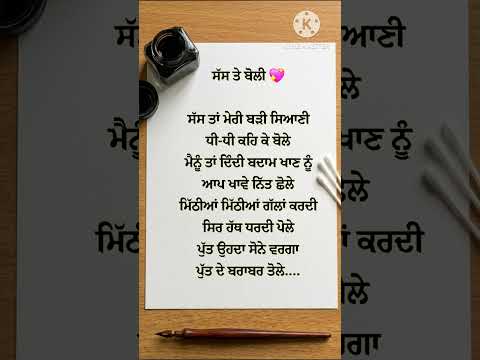 ਸੱਸ ਤੇ ਬੋਲੀ 💖
ਸੱਸ ਤਾਂ ਮੇਰੀ ਬੜੀ ਸਿਆਣੀ
ਧੀ-ਧੀ ਕਹਿ ਕੇ ਬੋਲੇ
ਮੈਨੂੰ ਤਾਂ ਦਿੰਦੀ ਬਦਾਮ ਖਾਣ ਨੂੰ
ਆਪ ਖਾਵੇ ਨਿੱਤ ਛੋਲੇ
ਮਿੱਠੀਆਂ ਮਿੱਠੀਆਂ ਗੱਲਾਂ ਕਰਦੀ
ਸਿਰ ਹੱਥ ਧਰਦੀ ਪੋਲੇ
ਪੁੱਤ ਉਹਦਾ ਸੋਨੇ ਵਰਗਾ
ਪੁੱਤ ਦੇ ਬਰਾਬਰ ਤੋਲੇ....